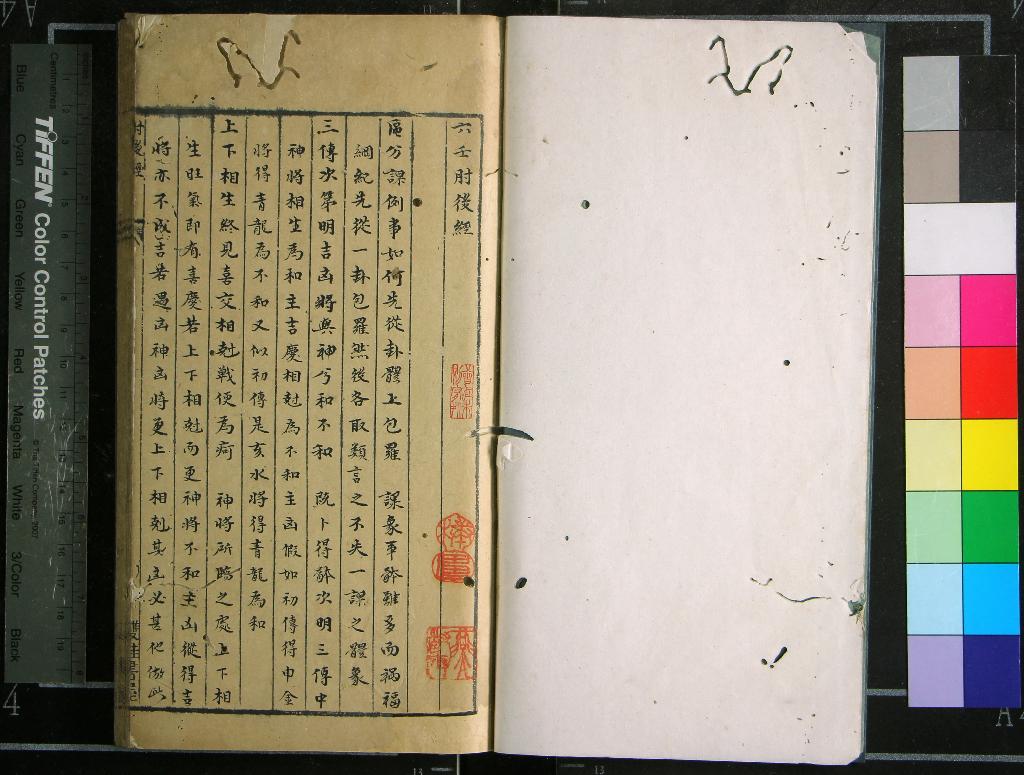 六壬肘後經
區分課例事如何先從卦體上包羅 課象平辭雖多而禍福
綱紀先從一卦包羅然後各取類言之不失一課之體象
三傳次第明吉凶將與神兮和不和 既卜得辭次明三傳中
神將相生為和主吉慶相尅為不和主凶假如初傳得申金
將得青龍為不和又似初傳是亥水將得青龍為和
上下相生終見喜交相尅戰便為疴 神將所臨之處上下相
生旺氣即有喜慶若上下相尅而更神將不和主凶縱得吉
將亦不成吉若遇凶神凶將更上下相尅其凶必甚他倣此
肘後經
TIFFEN Color Control Patches
© The Tiffen Company, 2007
Centimetres
Blue
Cyan
Green
Yellow
Red
Magenta
White
3/Color
Black
4
A
13